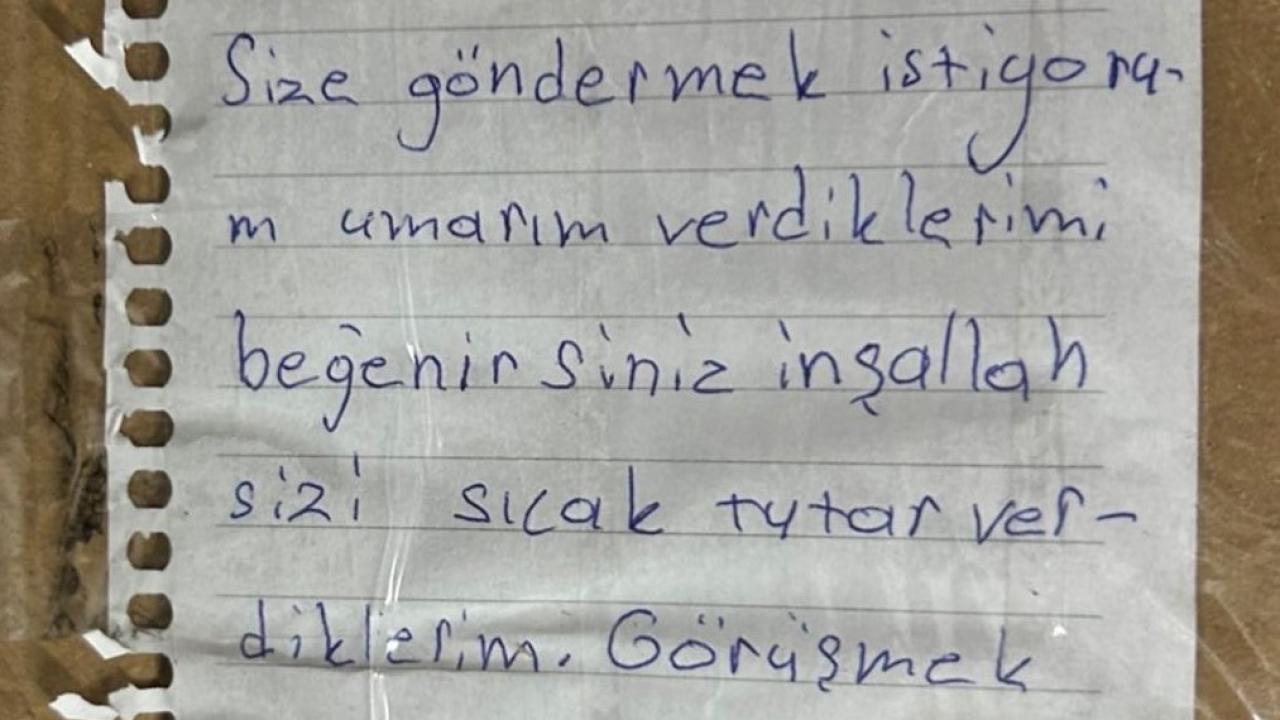 Size göndermek istiyoru-
m umarım verdiklerimi
beğenirsiniz inşallah
sizi sıcak tutar ver-
diklerim. Görüşmek